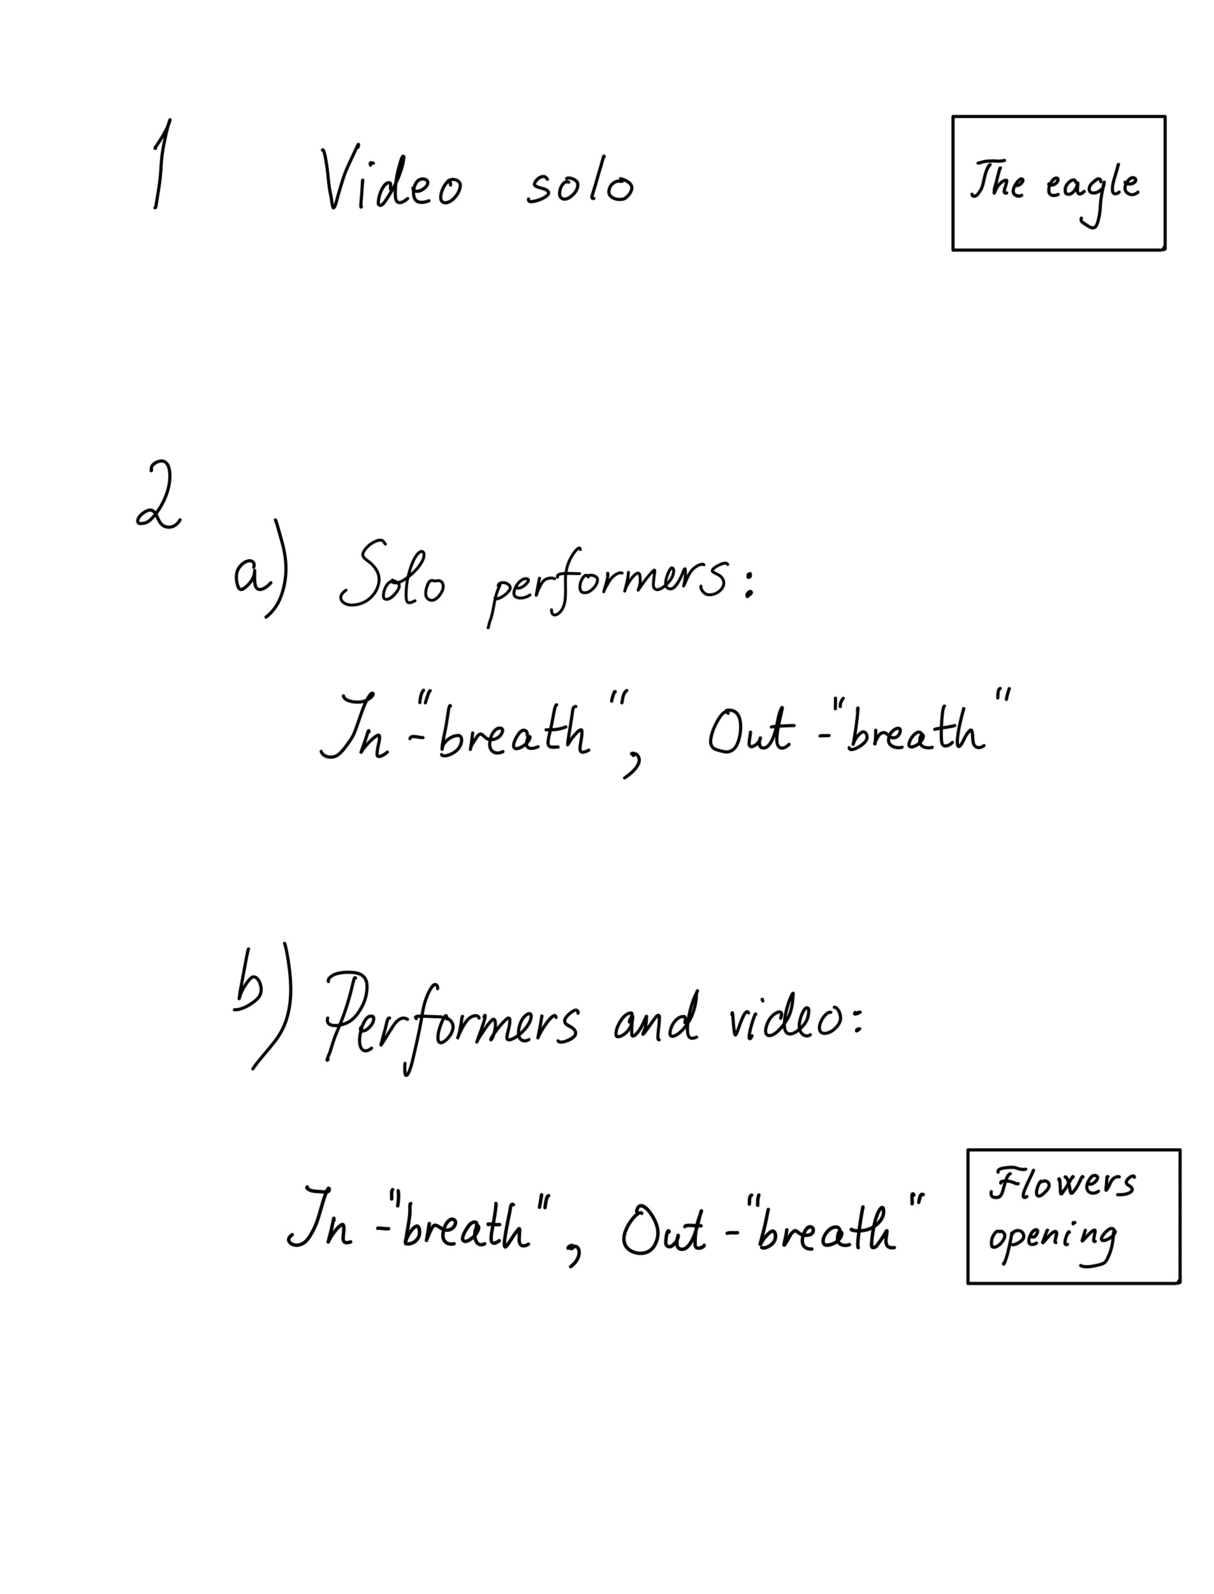 1 Video solo The eagle
2
a) Solo performers:
In-"breath", Out-"breath"
b) Performers and video:
In-"breath", Out-"breath" Flowers
opening